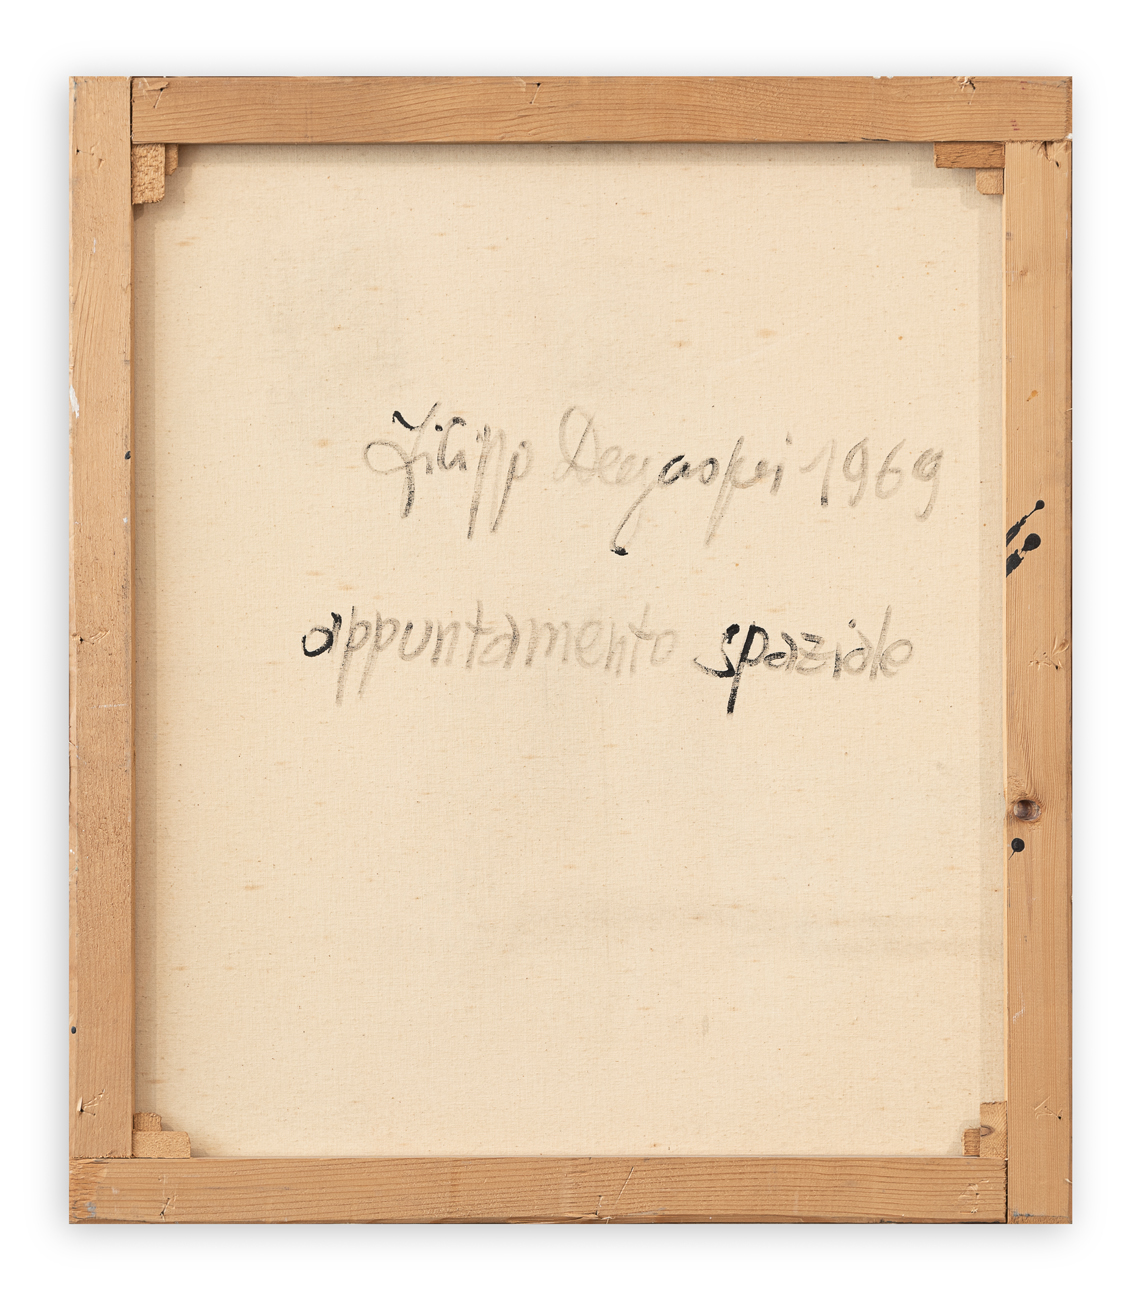 Filipp Degasperi 1969
appuntamento spaziale